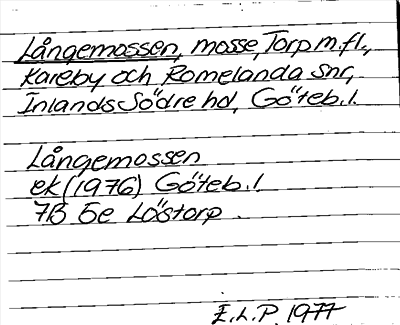 Långemossen, mosse, Torp m.fl.,
Kareby och Romelanda snr,
Inlands Södre hd, Göteb.l.
Långemossen
ek (1976) Göteb.l
7B 5e Löstorp.
E.L.P. 1977